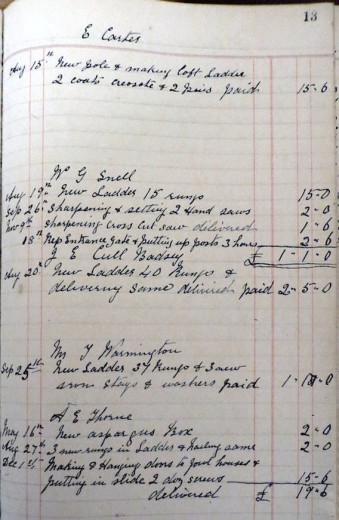 13
E Carter
Aug 15th New pole & making Loft Ladder
2 coats creosote & 2 pairs paid 15-6
Mr G Snell
Aug 19th New Ladder 15 rungs 15-0
Sep 26th Sharpening & setting 2 Hand saws 2-0
Nov 9th Sharpening cross cut saw delivered 1-6
18th Rep Entrance gate & putting up posts 3 hours 2-6
£ 1-1-0
J E Cull Badsey
Aug 20th New Ladder 40 Rungs &
delivering same delivered paid 2-5-0
Mr T Warmington
Sep 25th New Ladder 37 Rungs & 3 new
iron stays & washers paid
A E Thorne
May 16th New aspargus Box 2-0
Aug 27th 3 new rungs in Ladder & nailing same 2-0
Dec 1st Making & Hanging doors to fowl houses &
putting in slide 2 doz screws 15-6
delivered £ 19-6